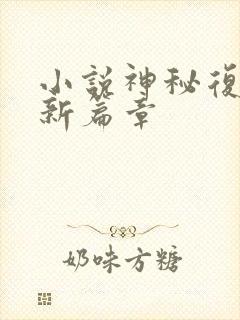 小說神秘復
新篇章
奶味方糖